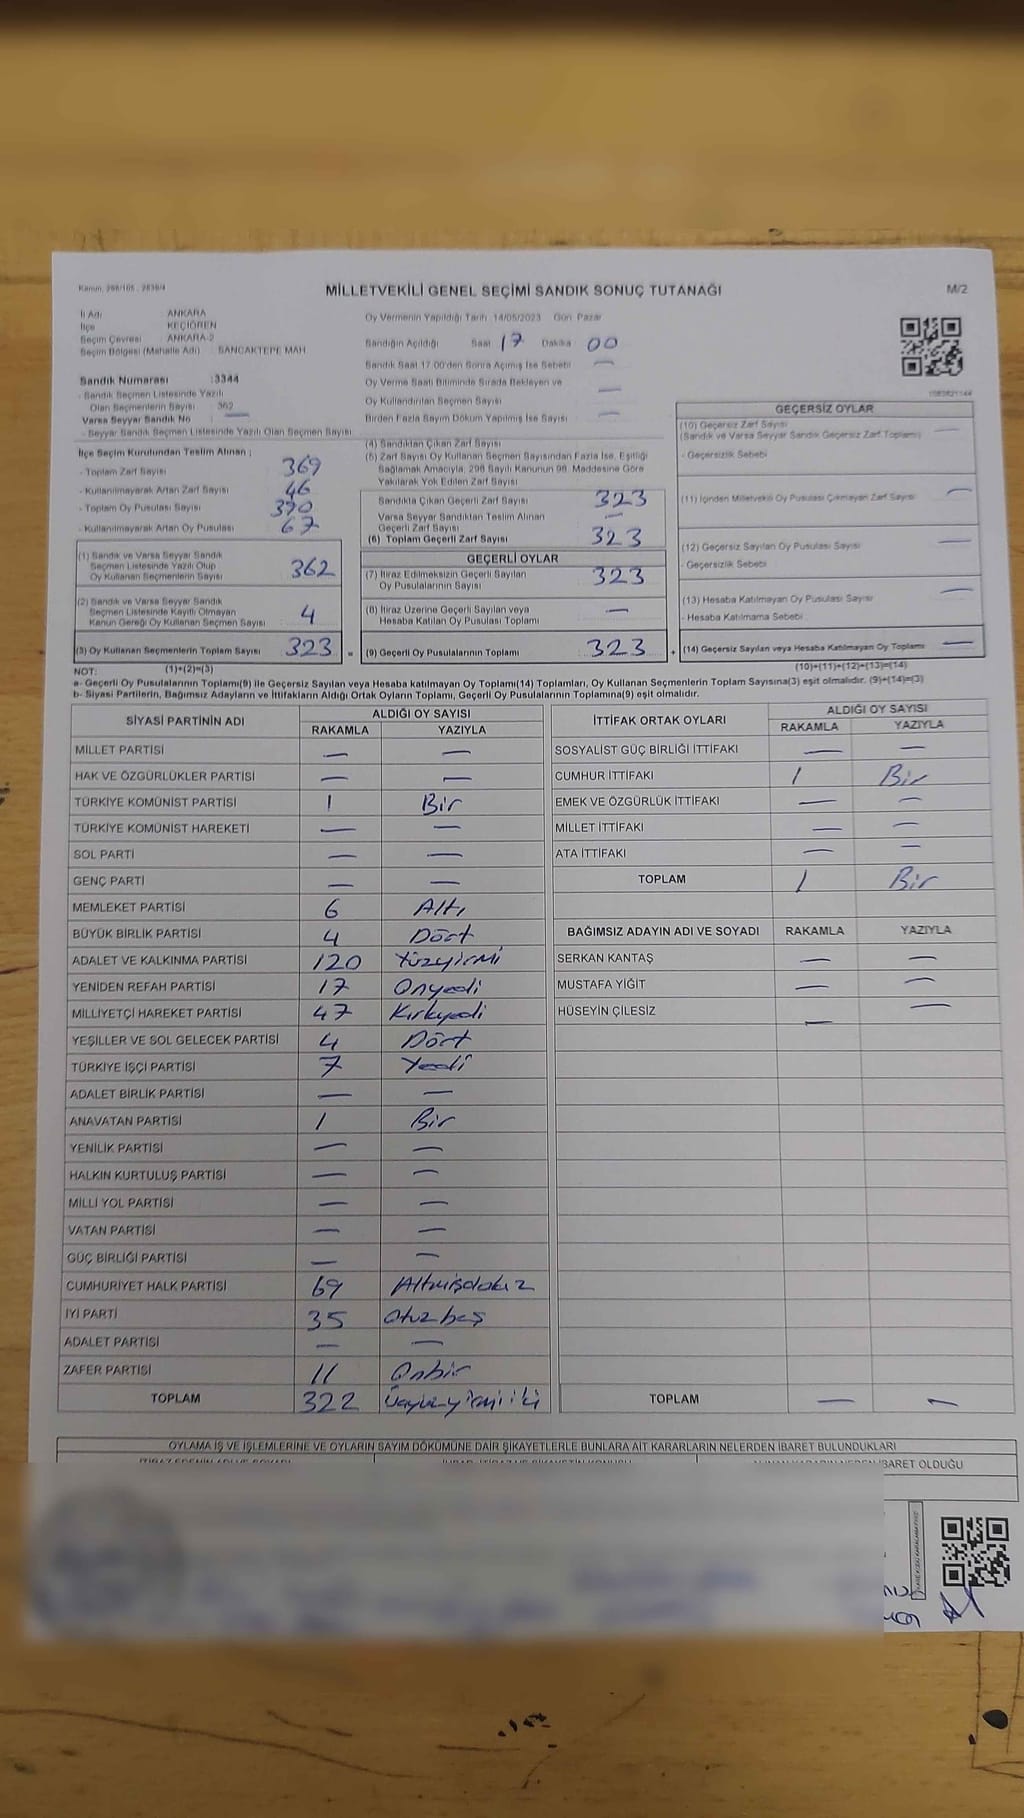 Kanun, 298/105 , 2839/4
MİLLETVEKİLİ GENEL SEÇİMİ SANDIK SONUÇ TUTANAĞI
M/2
İl Adı ANKARA
İlçe KEÇİÖREN
Seçim Çevresi ANKARA-2
Seçim Bölgesi (Mahalle Adı) SANCAKTEPE MAH.
Sandık Numarası :3344
- Sandık Seçmen Listesinde Yazılı
Olan Seçmenlerin Sayısı 362
Varsa Seyyar Sandık No —
- Seyyar Sandık Seçmen Listesinde Yazılı Olan Seçmen Sayısı
Oy Vermenin Yapıldığı Tarih 14/05/2023 Gün Pazar
Sandığın Açıldığı Saat 17 Dakika 00
Sandık Saat 17.00'den Sonra Açılmış İse Sebebi —
Oy Verme Saati Bitiminde Sırada Bekleyen ve
Oy Kullandırılan Seçmen Sayısı —
Birden Fazla Sayım Döküm Yapılmış İse Sayısı —
İlçe Seçim Kurulundan Teslim Alınan ;
- Toplam Zarf Sayısı 369
- Kullanılmayarak Artan Zarf Sayısı 46
- Toplam Oy Pusulası Sayısı 390
- Kullanılmayarak Artan Oy Pusulası 67
(1) Sandık ve Varsa Seyyar Sandık
Seçmen Listesinde Yazılı Olup
Oy Kullanan Seçmenlerin Sayısı 362
(2) Sandık ve Varsa Seyyar Sandık
Seçmen Listesinde Kayıtlı Olmayan
Kanun Gereği Oy Kullanan Seçmen Sayısı 4
(3) Oy Kullanan Seçmenlerin Toplam Sayısı 323 =
(4) Sandıktan Çıkan Zarf Sayısı
(5) Zarf Sayısı Oy Kullanan Seçmen Sayısından Fazla İse, Eşitliği
Sağlamak Amacıyla, 298 Sayılı Kanunun 98. Maddesine Göre
Yakılarak Yok Edilen Zarf Sayısı
Sandıkta Çıkan Geçerli Zarf Sayısı 323
Varsa Seyyar Sandıktan Teslim Alınan
Geçerli Zarf Sayısı —
(6) Toplam Geçerli Zarf Sayısı 323
GEÇERLİ OYLAR
(7) İtiraz Edilmeksizin Geçerli Sayılan
Oy Pusulalarının Sayısı 323
(8) İtiraz Üzerine Geçerli Sayılan veya
Hesaba Katılan Oy Pusulası Toplamı —
(9) Geçerli Oy Pusulalarının Toplamı 323 +
GEÇERSİZ OYLAR
(10) Geçersiz Zarf Sayısı —
(Sandık ve Varsa Seyyar Sandık Geçersiz Zarf Toplamı)
- Geçersizlik Sebebi
(11) İçinden Milletvekili Oy Pusulası Çıkmayan Zarf Sayısı —
(12) Geçersiz Sayılan Oy Pusulası Sayısı —
- Geçersizlik Sebebi
(13) Hesaba Katılmayan Oy Pusulası Sayısı —
- Hesaba Katılmama Sebebi
(14) Geçersiz Sayılan veya Hesaba Katılmayan Oy Toplamı —
NOT: (1)+(2)=(3) (10)+(11)+(12)+(13)=(14)
a- Geçerli Oy Pusulalarının Toplamı(9) ile Geçersiz Sayılan veya Hesaba katılmayan Oy Toplamı(14) Toplamları, Oy Kullanan Seçmenlerin Toplam Sayısına(3) eşit olmalıdır. (9)+(14)=(3)
b- Siyasi Partilerin, Bağımsız Adayların ve İttifakların Aldığı Ortak Oyların Toplamı, Geçerli Oy Pusulalarının Toplamına(9) eşit olmalıdır.
SİYASİ PARTİNİN ADI ALDIĞI OY SAYISI
RAKAMLA YAZIYLA
MİLLET PARTİSİ — —
HAK VE ÖZGÜRLÜKLER PARTİSİ — —
TÜRKİYE KOMÜNİST PARTİSİ 1 Bir
TÜRKİYE KOMÜNİST HAREKETİ — —
SOL PARTİ — —
GENÇ PARTİ — —
MEMLEKET PARTİSİ 6 Altı
BÜYÜK BİRLİK PARTİSİ 4 Dört
ADALET VE KALKINMA PARTİSİ 120 Yüzyirmi
YENİDEN REFAH PARTİSİ 17 Onyedi
MİLLİYETÇİ HAREKET PARTİSİ 47 Kırkyedi
YEŞİLLER VE SOL GELECEK PARTİSİ 4 Dört
TÜRKİYE İŞÇİ PARTİSİ 7 Yedi
ADALET BİRLİK PARTİSİ — —
ANAVATAN PARTİSİ 1 Bir
YENİLİK PARTİSİ — —
HALKIN KURTULUŞ PARTİSİ — —
MİLLİ YOL PARTİSİ — —
VATAN PARTİSİ — —
GÜÇ BİRLİĞİ PARTİSİ — —
CUMHURİYET HALK PARTİSİ 69 Altmışdokuz
İYİ PARTİ 35 Otuzbeş
ADALET PARTİSİ — —
ZAFER PARTİSİ 11 Onbir
TOPLAM 322 Üçyüzyirmiiki
İTTİFAK ORTAK OYLARI ALDIĞI OY SAYISI
RAKAMLA YAZIYLA
SOSYALİST GÜÇ BİRLİĞİ İTTİFAKI — —
CUMHUR İTTİFAKI 1 Bir
EMEK VE ÖZGÜRLÜK İTTİFAKI — —
MİLLET İTTİFAKI — —
ATA İTTİFAKI — —
TOPLAM 1 Bir
BAĞIMSIZ ADAYIN ADI VE SOYADI RAKAMLA YAZIYLA
SERKAN KANTAŞ — —
MUSTAFA YİĞİT — —
HÜSEYİN ÇİLESİZ — —
TOPLAM — —
OYLAMA İŞ VE İŞLEMLERİNE VE OYLARIN SAYIM DÖKÜMÜNE DAİR ŞİKAYETLERLE BUNLARA AİT KARARLARIN NELERDEN İBARET BULUNDUKLARI
İBARET OLDUĞU